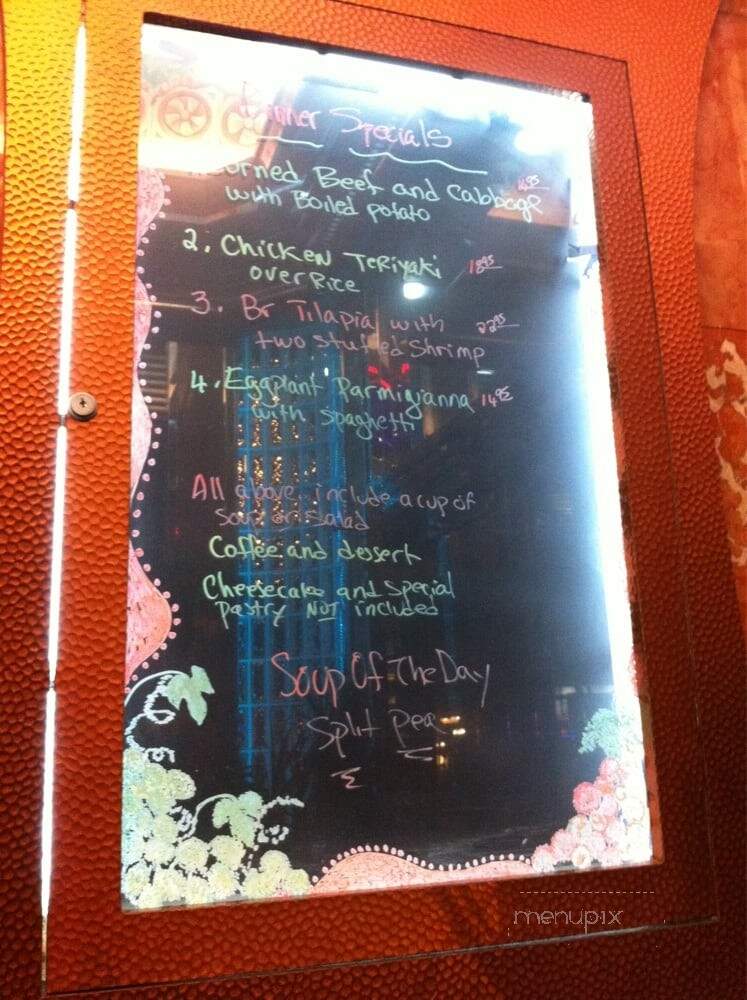 Dinner Specials
Corned Beef and Cabbage 16.95
with Boiled potato
2. Chicken Teriyaki 18.95
over Rice
3. Br Tilapia with 22.95
two stuffed Shrimp
4. Eggplant Parmigianna 14.95
with spaghetti
All above include a cup of
Soup or Salad
Coffee and dessert
Cheesecake and Special
Pastry NOT included
Soup Of The Day
Split Pea
menupix